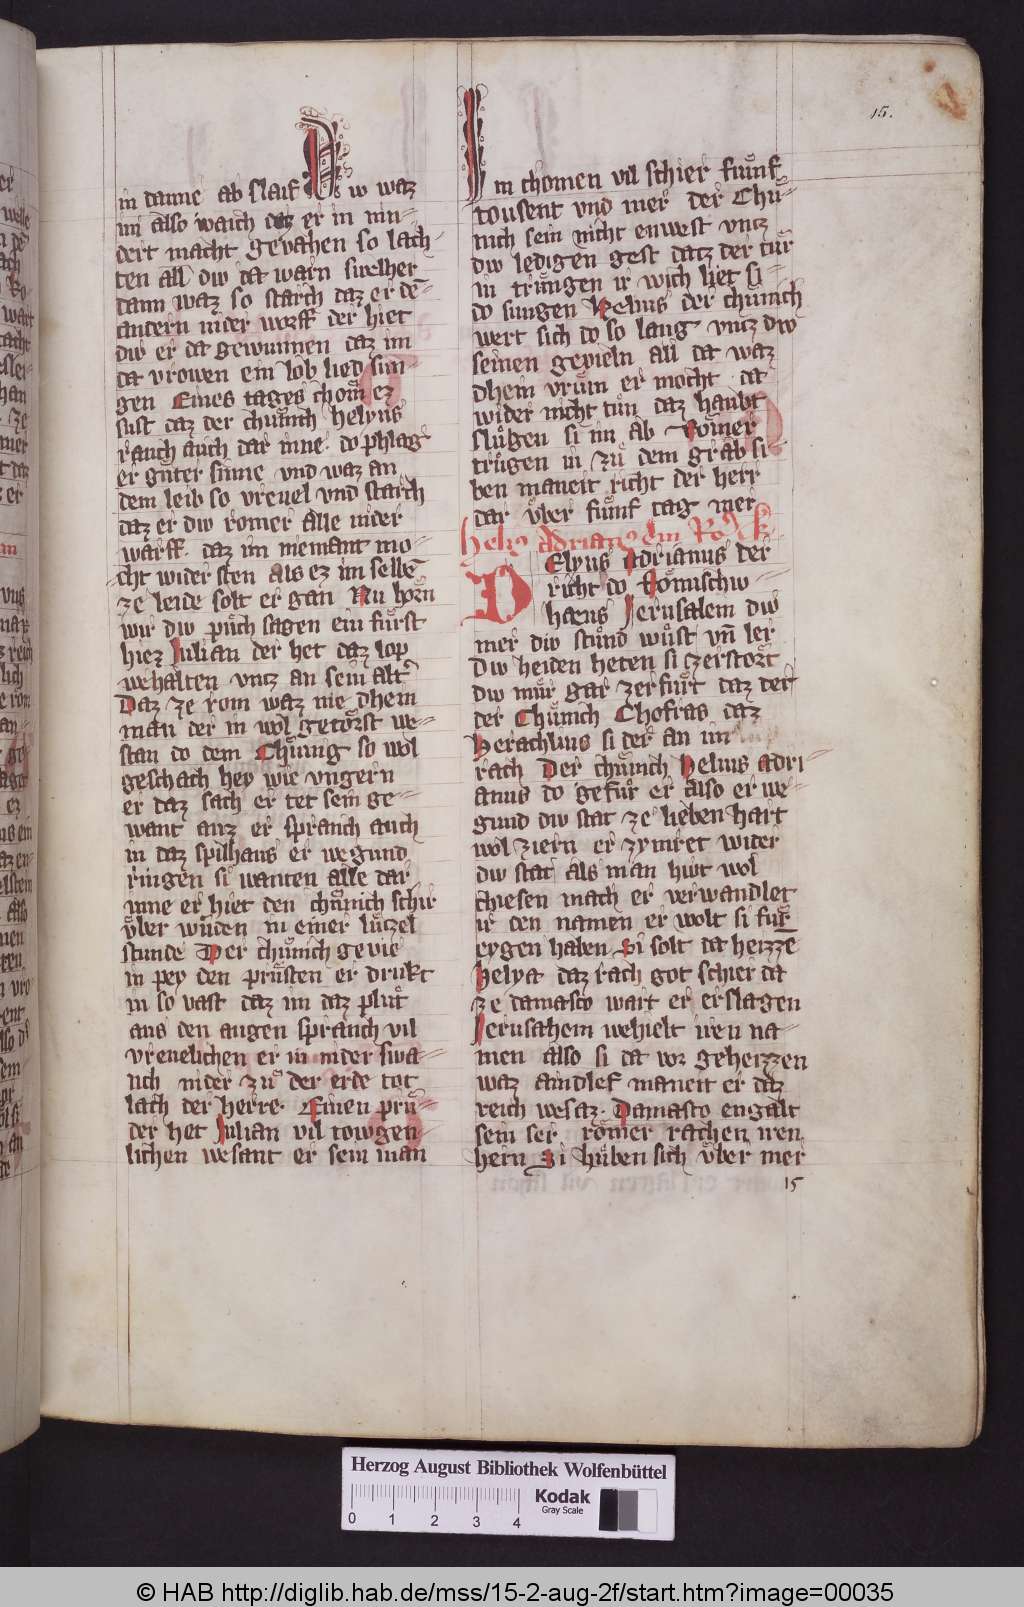 15.
in danne ab slaif Nw waz
im also waich daz er in nin-
dert macht gevahen so lach-
ten all diw da warn swelher
dann waz so starch daz er dē-
andern nider worff der hiet
diw er da gewunnen daz im
da vrowen ein lob lied sun-
gen Eines tages chom ez
sust daz der chuͤnich helyus
rauch auch dar inne. do phlag
er guͤter sinne vnd waz an
dem leib so vreuel vnd starch
daz er diw romer alle nider
warff. daz im niemant mo-
cht wider sten als ez im selbē
ze leide solt er gan Nu horn̄
wir diw puͤch sagen ein fuͤrst
hiez Julian der het daz lop
wehalten vncz an sein alt
Daz ze rom waz nie dhem
man der in wol getoͤrst we-
stan do dem Chuͤnig so wol
geschach hey wie vngern
er daz sach er tet sein ge-
want anz er spranch auch
in daz spilhaus er wegund
ringen si wanten alle dar
inne er hiet den chuͤnich schir
vͤber wūden in einer luͤczel
stunde Der chuͤnich gevie
in pey den pruͤsten er drukt
in so vast daz im daz pluͤt
aus den augen spranch vil
vreuelichen er in nider swa-
nch nider zuͤ der erde tot
lach der herre. Einen pruͤ-
der het Julian vil towgen
lichen wesant er sein man
Im chomen vil schier fuͤnf
tousent vnd mer der Chuͤ-
nich sein nicht enwest vncz
diw ledigen gest datz der tuͤr
in truͤngen ir wich liet si
do sungen helius der chuͤnich
wert sich do so lang vncz diw
seinen gevieln all da waz
dhein vruͤm er mocht da
wider nicht tuͤn daz haubt
sluͤgen si im ab Romer
truͤgen in zuͤ dem grab si
ben maneit richt der herr
dar vͤber fuͤnf tag mer
Helyus Adrianus der
richt do Roͤmischiw
haeus Jerusalem diw
mer diw stuͤnd wuͤst vn̄ ler
Diw heiden heten si czerstort
diw muͤr gar zerfuͤrt daz der
der Chuͤnich Chosras daz
Herachlius si der an im
rach Der chuͤnich Helius adri
anus do gefuͤr er also er we-
gund diw stat ze lieben hart
wol ziern er zymret wider
diw stat als man hiwt wol
chiesen mach er verwandlet
ir den namen er wolt si fuͤr
eygen haben Si solt da heizzē
Helya daz rach got schier da
ze damasco wart er erslagen
Jerusalem wehielt iren na-
men also si da vor geheizzen
waz aindlef maneit er daz
reich wesaz. Damasco engalt
sein ser roͤmer rachen iren
hern Si huͤben sich vͤber mer
15
Herzog August Bibliothek Wolfenbüttel
Kodak
Gray Scale
0 1 2 3 4
© HAB http://diglib.hab.de/mss/15-2-aug-2f/start.htm?image=00035